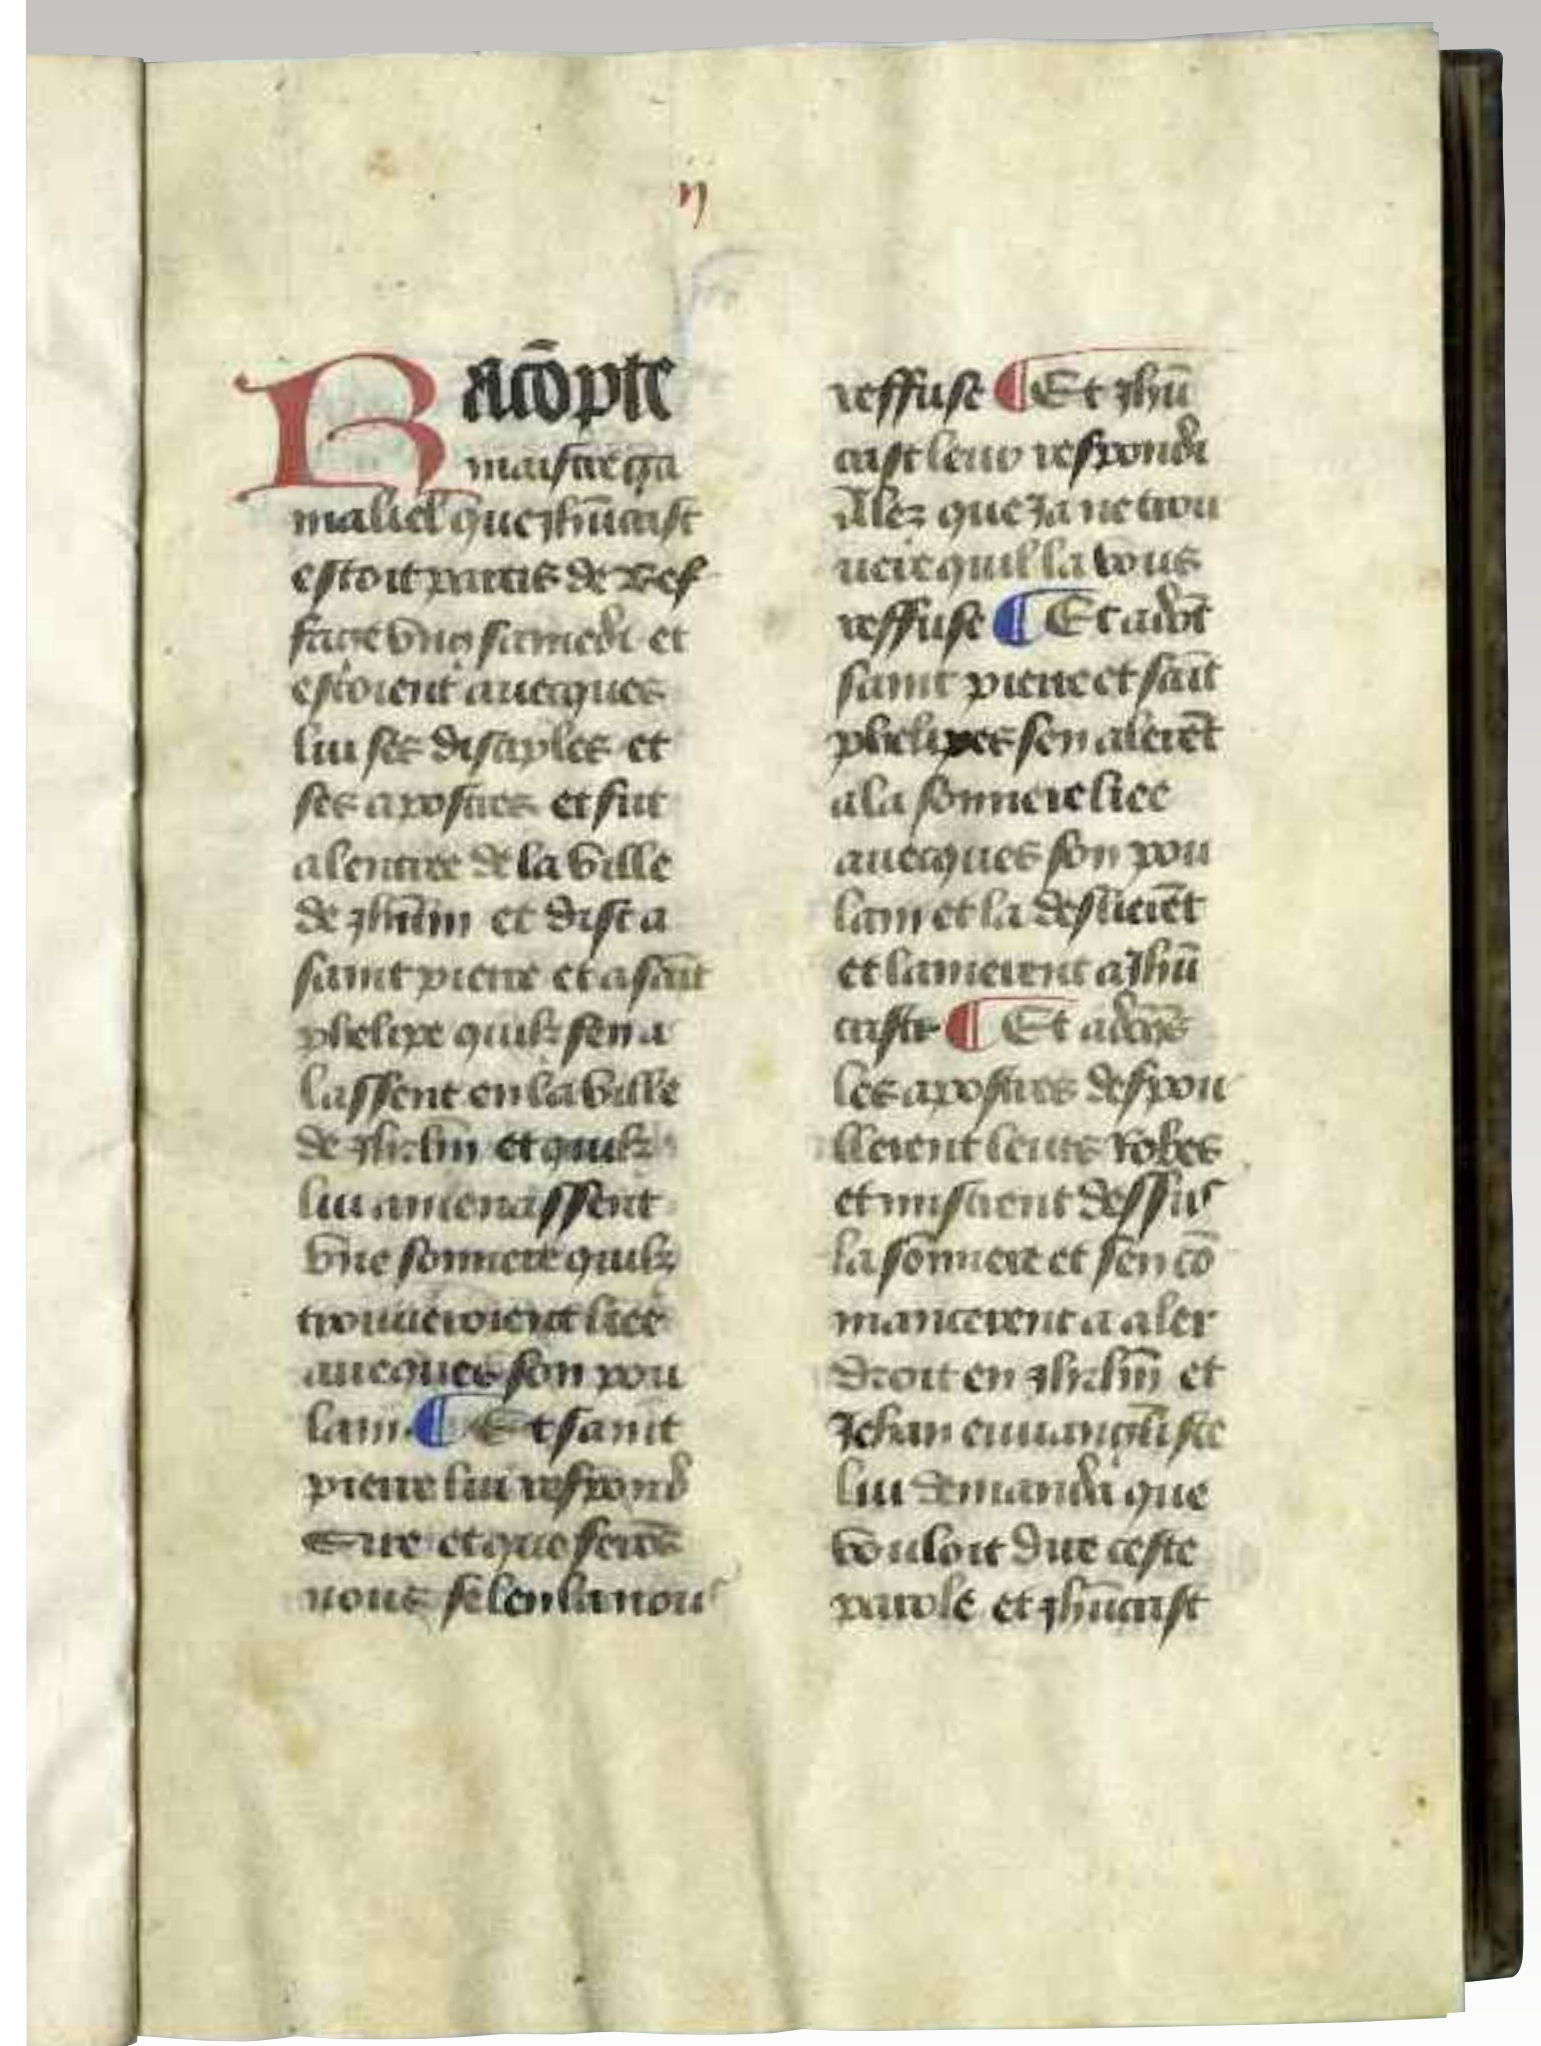 ij
Racõpte
maistre ga
maliel que jhũcrist
estoit partis de bef
fage vng samedi et
estoient auecques
lui ses disciples et
ses apostres et fut
alentree de la ville
de jhrlm̃ et dist a
saint pierre et a saĩt
phelipe quilz sen a
lassent en la ville
de jhrlm̃ et quilz
lui amenassent
vne sommere quilz
trouueroient liee
auecques son pou
lain ¶ Et saint
pierre lui respond
Sire et que serõs
nous se len la nous
reffuse ¶ Et jhũ
crist leur respondi
Alez que ja ne trou
uere quil la vous
reffuse ¶ Et adõt
saint pierre et saĩt
phelipes sen alerẽt
a la sommere liee
auecques son pou
lain et la deslierẽt
et lamerent a Jhũ
crist ¶ Et
les apostres despou
llerent leurs robes
et mistrent dessus
la sõmere et sen cõ
mancerent a aler
droit en jhrlm̃ et
Jehan euuangeliste
lui demanda que
vouloit dire ceste
parole et jhũcrist